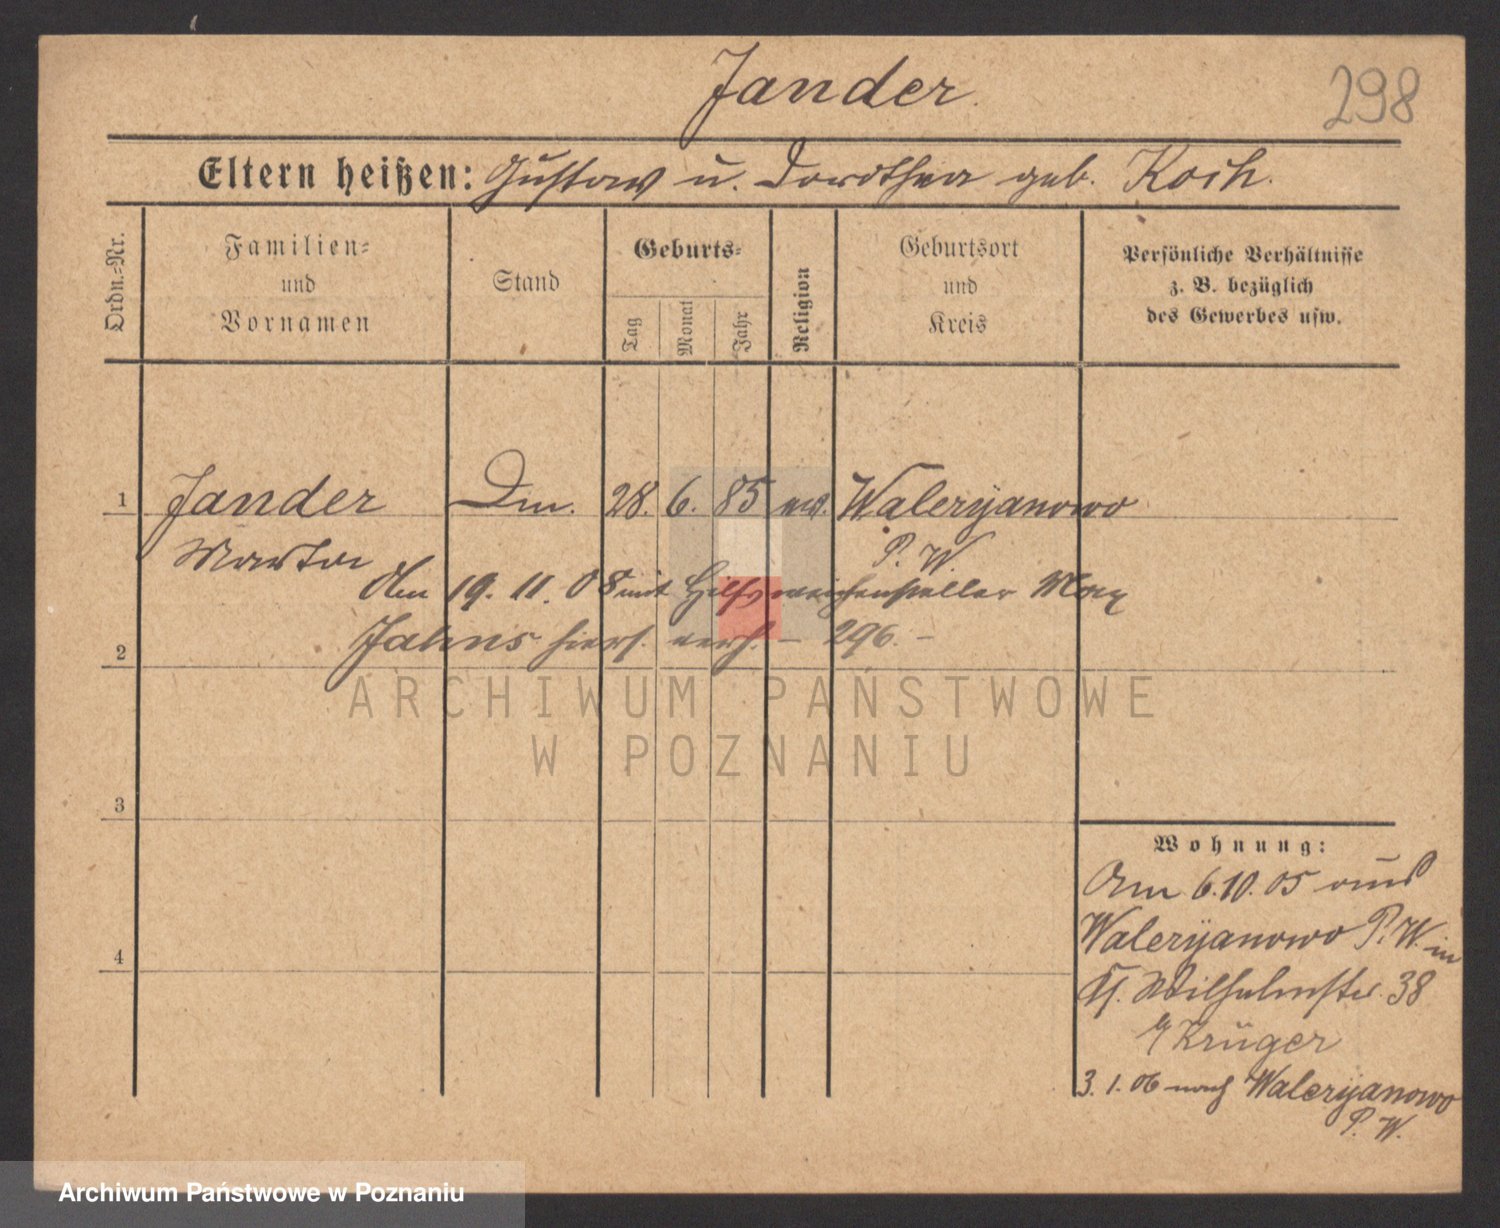 Jander.
298
Eltern heißen: Gustav u. Dorothea geb. Koch.
Ordn.=Nr.
Familien=
und
Vornamen
Stand
Geburts=
Tag
Monat
Jahr
Religion
Geburtsort
und
Kreis
Persönliche Verhältnisse
z. B. bezüglich
des Gewerbes usw.
1
Jander
Dm. 28. 6. 85 ev. Waleryanowo
Martha
P. W.
Am 19. 11. 08 mit Hilfsweichensteller Max
Jahns hiers. verh. – 296. –
2
ARCHIWUM PAŃSTWOWE
W POZNANIU
3
4
Wohnung:
Am 6.10.05 aus
Waleryanowo P. W. in
Wilhelmstr. 38
b/ Krüger
3. 1. 06 nach Waleryanowo
P. W.
Archiwum Państwowe w Poznaniu